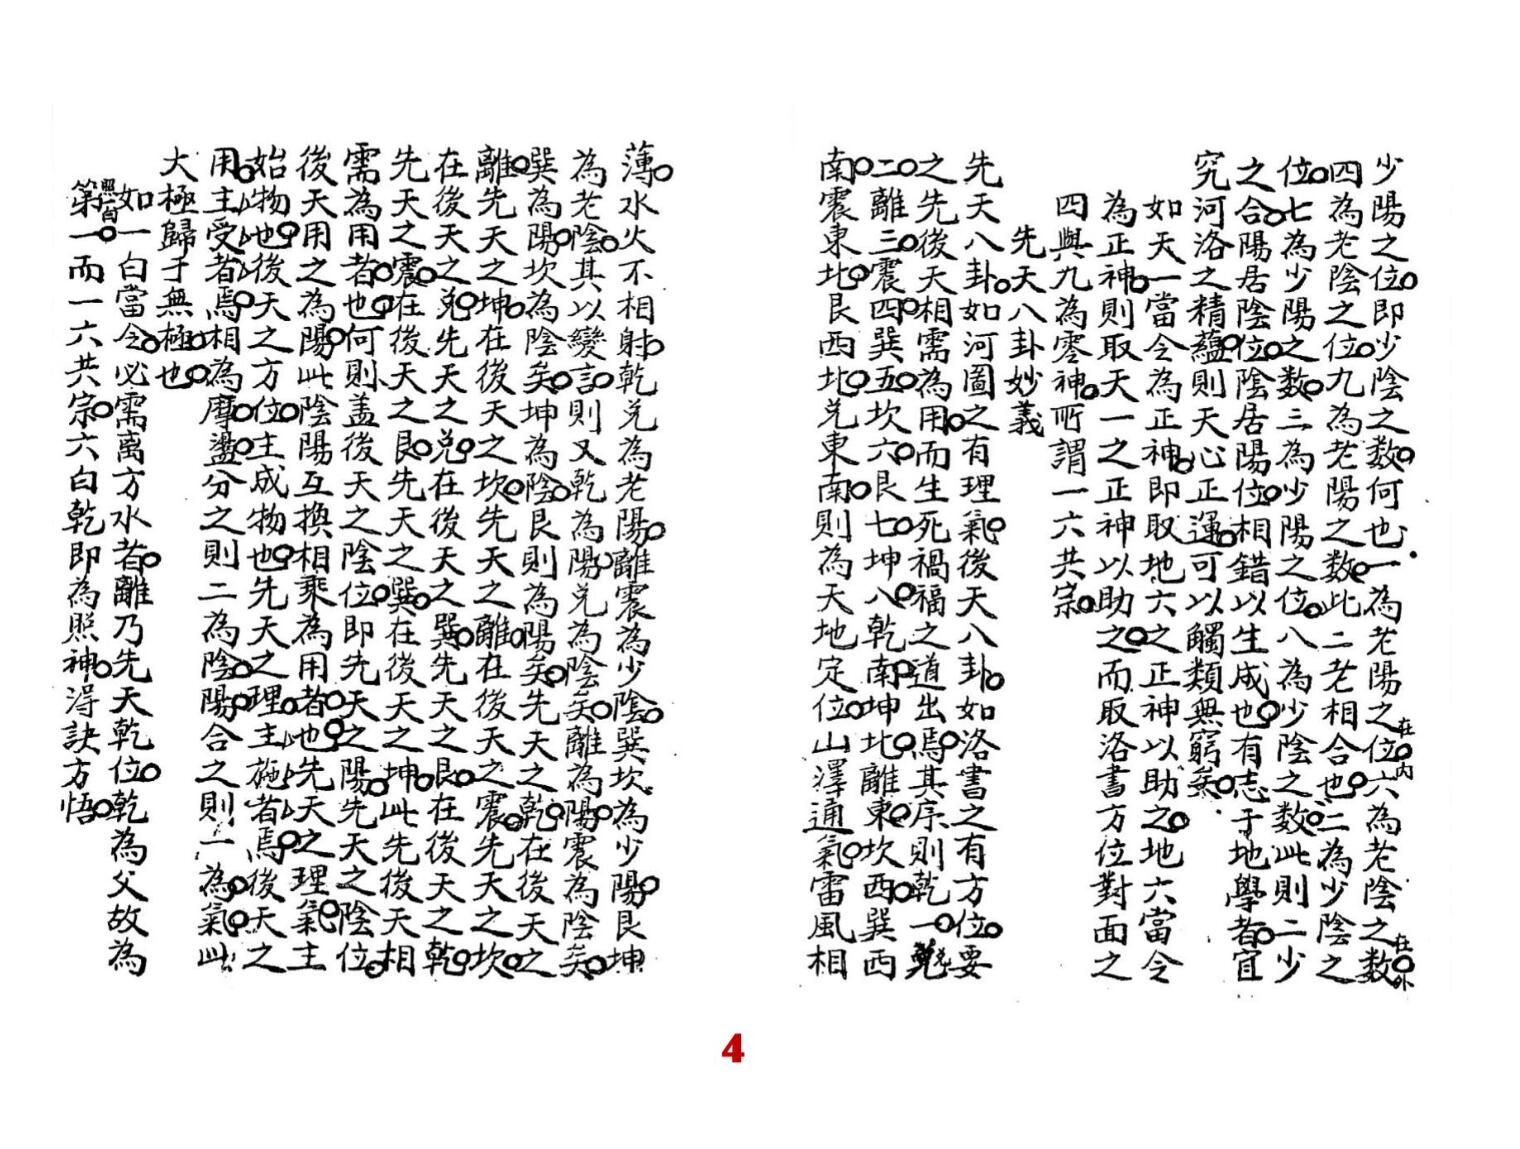 少陽之位。即少陰之数。何也。一為老陽之位在內。六為老陰之数在外。
四為老陰之位。九為老陽之数。此二老相合也。二為少陰之
位。七為少陽之数。三為少陽之位。八為少陰之数。此則二少
之合。陽居陰位。陰居陽位。相錯以生成也。有志于地學者。宜
究河洛之精蘊。則天心正運。可以觸類無窮矣。
如天一當令為正神。即取地六之正神以助之。地六當令
為正神。則取天一之正神以助之。而取洛書方位對面之
四與九為零神。所謂一六共宗。
先天八卦妙義
先天八卦。如河圖之有理氣。後天八卦。如洛書之有方位。要
之先後天相需為用。而生死禍福之道出焉。其序則乾一。兌
二。離三。震四。巽五。坎六。艮七。坤八。乾南。坤北。離東。坎西。巽西
南。震東北。艮西北。兌東南。則為天地定位。山澤通氣。雷風相
薄。水火不相射。乾兌為老陽。離震為少陰。巽坎為少陽。艮坤
為老陰。其以變言。則又乾為陽。兌為陰矣。離為陽。震為陰矣。
巽為陽。坎為陰矣。坤為陰。艮則為陽矣。先天之乾。在後天之
離。先天之坤。在後天之坎。先天之離。在後天之震。先天之坎。
在後天之兌。先天之兌。在後天之巽。先天之艮。在後天之乾。
先天之震。在後天之艮。先天之巽。在後天之坤。此先後天相
需為用者也。何則。盖後天之陰位。即先天之陽。先天之陰位。
後天用之為陽。此陰陽互換相乘為用者也。先天之理氣。主
始物也。後天之方位。主成物也。先天之理。主施者焉。後天之
用。主受者焉。相為摩盪。分之則二為陰陽。合之則一為氣。此
大極歸于無極也。
如一白當令。必需离方水者。離乃先天乾位。乾為父。故為
照白。第一而一六共宗。六白乾即為照神。淂訣方悟。
4